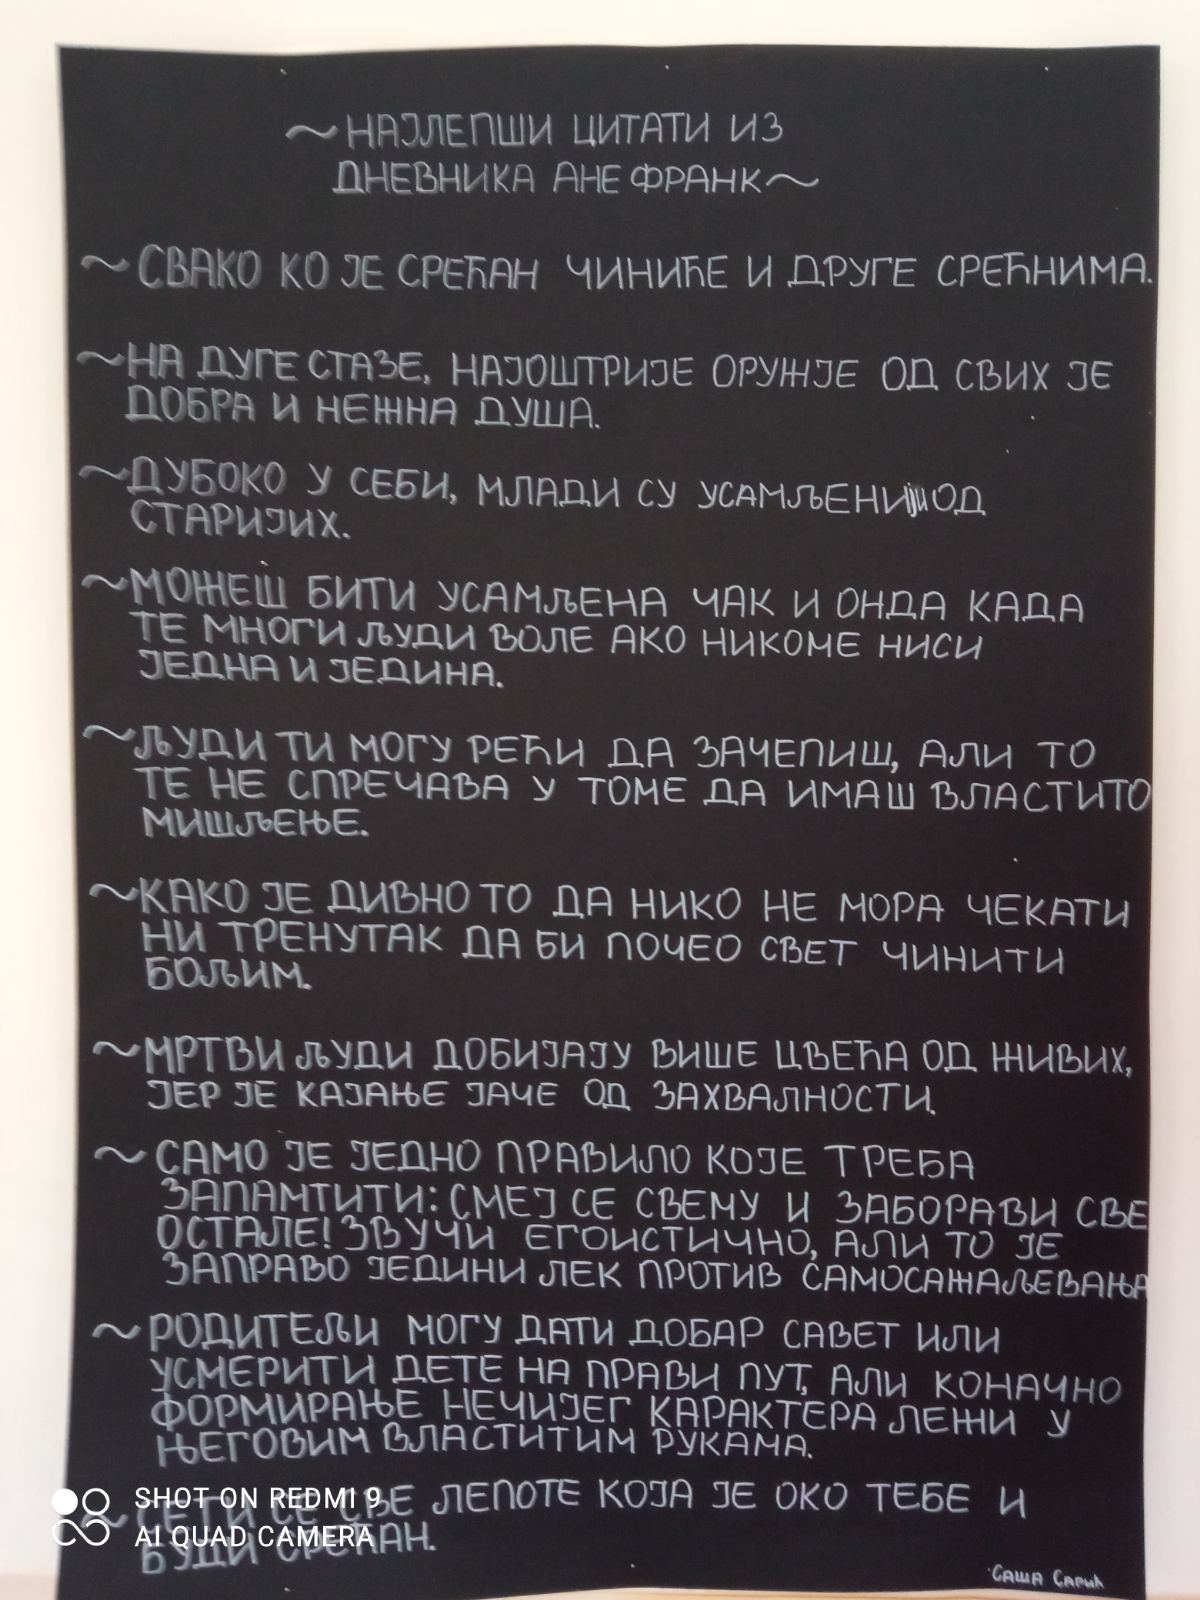 ~НАЈЛЕПШИ ЦИТАТИ ИЗ
ДНЕВНИКА АНЕ ФРАНК~
~СВАКО КО ЈЕ СРЕЋАН ЧИНИЋЕ И ДРУГЕ СРЕЋНИМА.
~НА ДУГЕ СТАЗЕ, НАЈОШТРИЈЕ ОРУЖЈЕ ОД СВИХ ЈЕ
ДОБРА И НЕЖНА ДУША.
~ДУБОКО У СЕБИ, МЛАДИ СУ УСАМЉЕНИЈИ ОД
СТАРИЈИХ.
~МОЖЕШ БИТИ УСАМЉЕНА ЧАК И ОНДА КАДА
ТЕ МНОГИ ЉУДИ ВОЛЕ АКО НИКОМЕ НИСИ
ЈЕДНА И ЈЕДИНА.
~ЉУДИ ТИ МОГУ РЕЋИ ДА ЗАЧЕПИШ, АЛИ ТО
ТЕ НЕ СПРЕЧАВА У ТОМЕ ДА ИМАШ ВЛАСТИТО
МИШЉЕЊЕ.
~КАКО ЈЕ ДИВНО ТО ДА НИКО НЕ МОРА ЧЕКАТИ
НИ ТРЕНУТАК ДА БИ ПОЧЕО СВЕТ ЧИНИТИ
БОЉИМ.
~МРТВИ ЉУДИ ДОБИЈАЈУ ВИШЕ ЦВЕЋА ОД ЖИВИХ,
ЈЕР ЈЕ КАЈАЊЕ ЈАЧЕ ОД ЗАХВАЛНОСТИ.
~САМО ЈЕ ЈЕДНО ПРАВИЛО КОЈЕ ТРЕБА
ЗАПАМТИТИ: СМЕЈ СЕ СВЕМУ И ЗАБОРАВИ СВЕ
ОСТАЛЕ! ЗВУЧИ ЕГОИСТИЧНО, АЛИ ТО ЈЕ
ЗАПРАВО ЈЕДИНИ ЛЕК ПРОТИВ САМОСАЖАЉЕВАЊА
~РОДИТЕЉИ МОГУ ДАТИ ДОБАР САВЕТ ИЛИ
УСМЕРИТИ ДЕТЕ НА ПРАВИ ПУТ, АЛИ КОНАЧНО
ФОРМИРАЊЕ НЕЧИЈЕГ КАРАКТЕРА ЛЕЖИ У
ЊЕГОВИМ ВЛАСТИТИМ РУКАМА.
~СЕТИ СЕ СВЕ ЛЕПОТЕ КОЈА ЈЕ ОКО ТЕБЕ И
БУДИ СРЕЋАН.
САША САРИЋ
SHOT ON REDMI 9
AI QUAD CAMERA